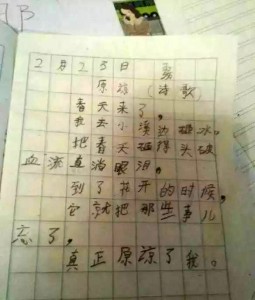 2月25日
原谅 (诗歌)
春天来了,
我去小溪边砸冰,
把春天砸得头破
血流直淌眼泪。
到了花开的时候,
它就把那些事儿
忘了,
真正原谅了我。